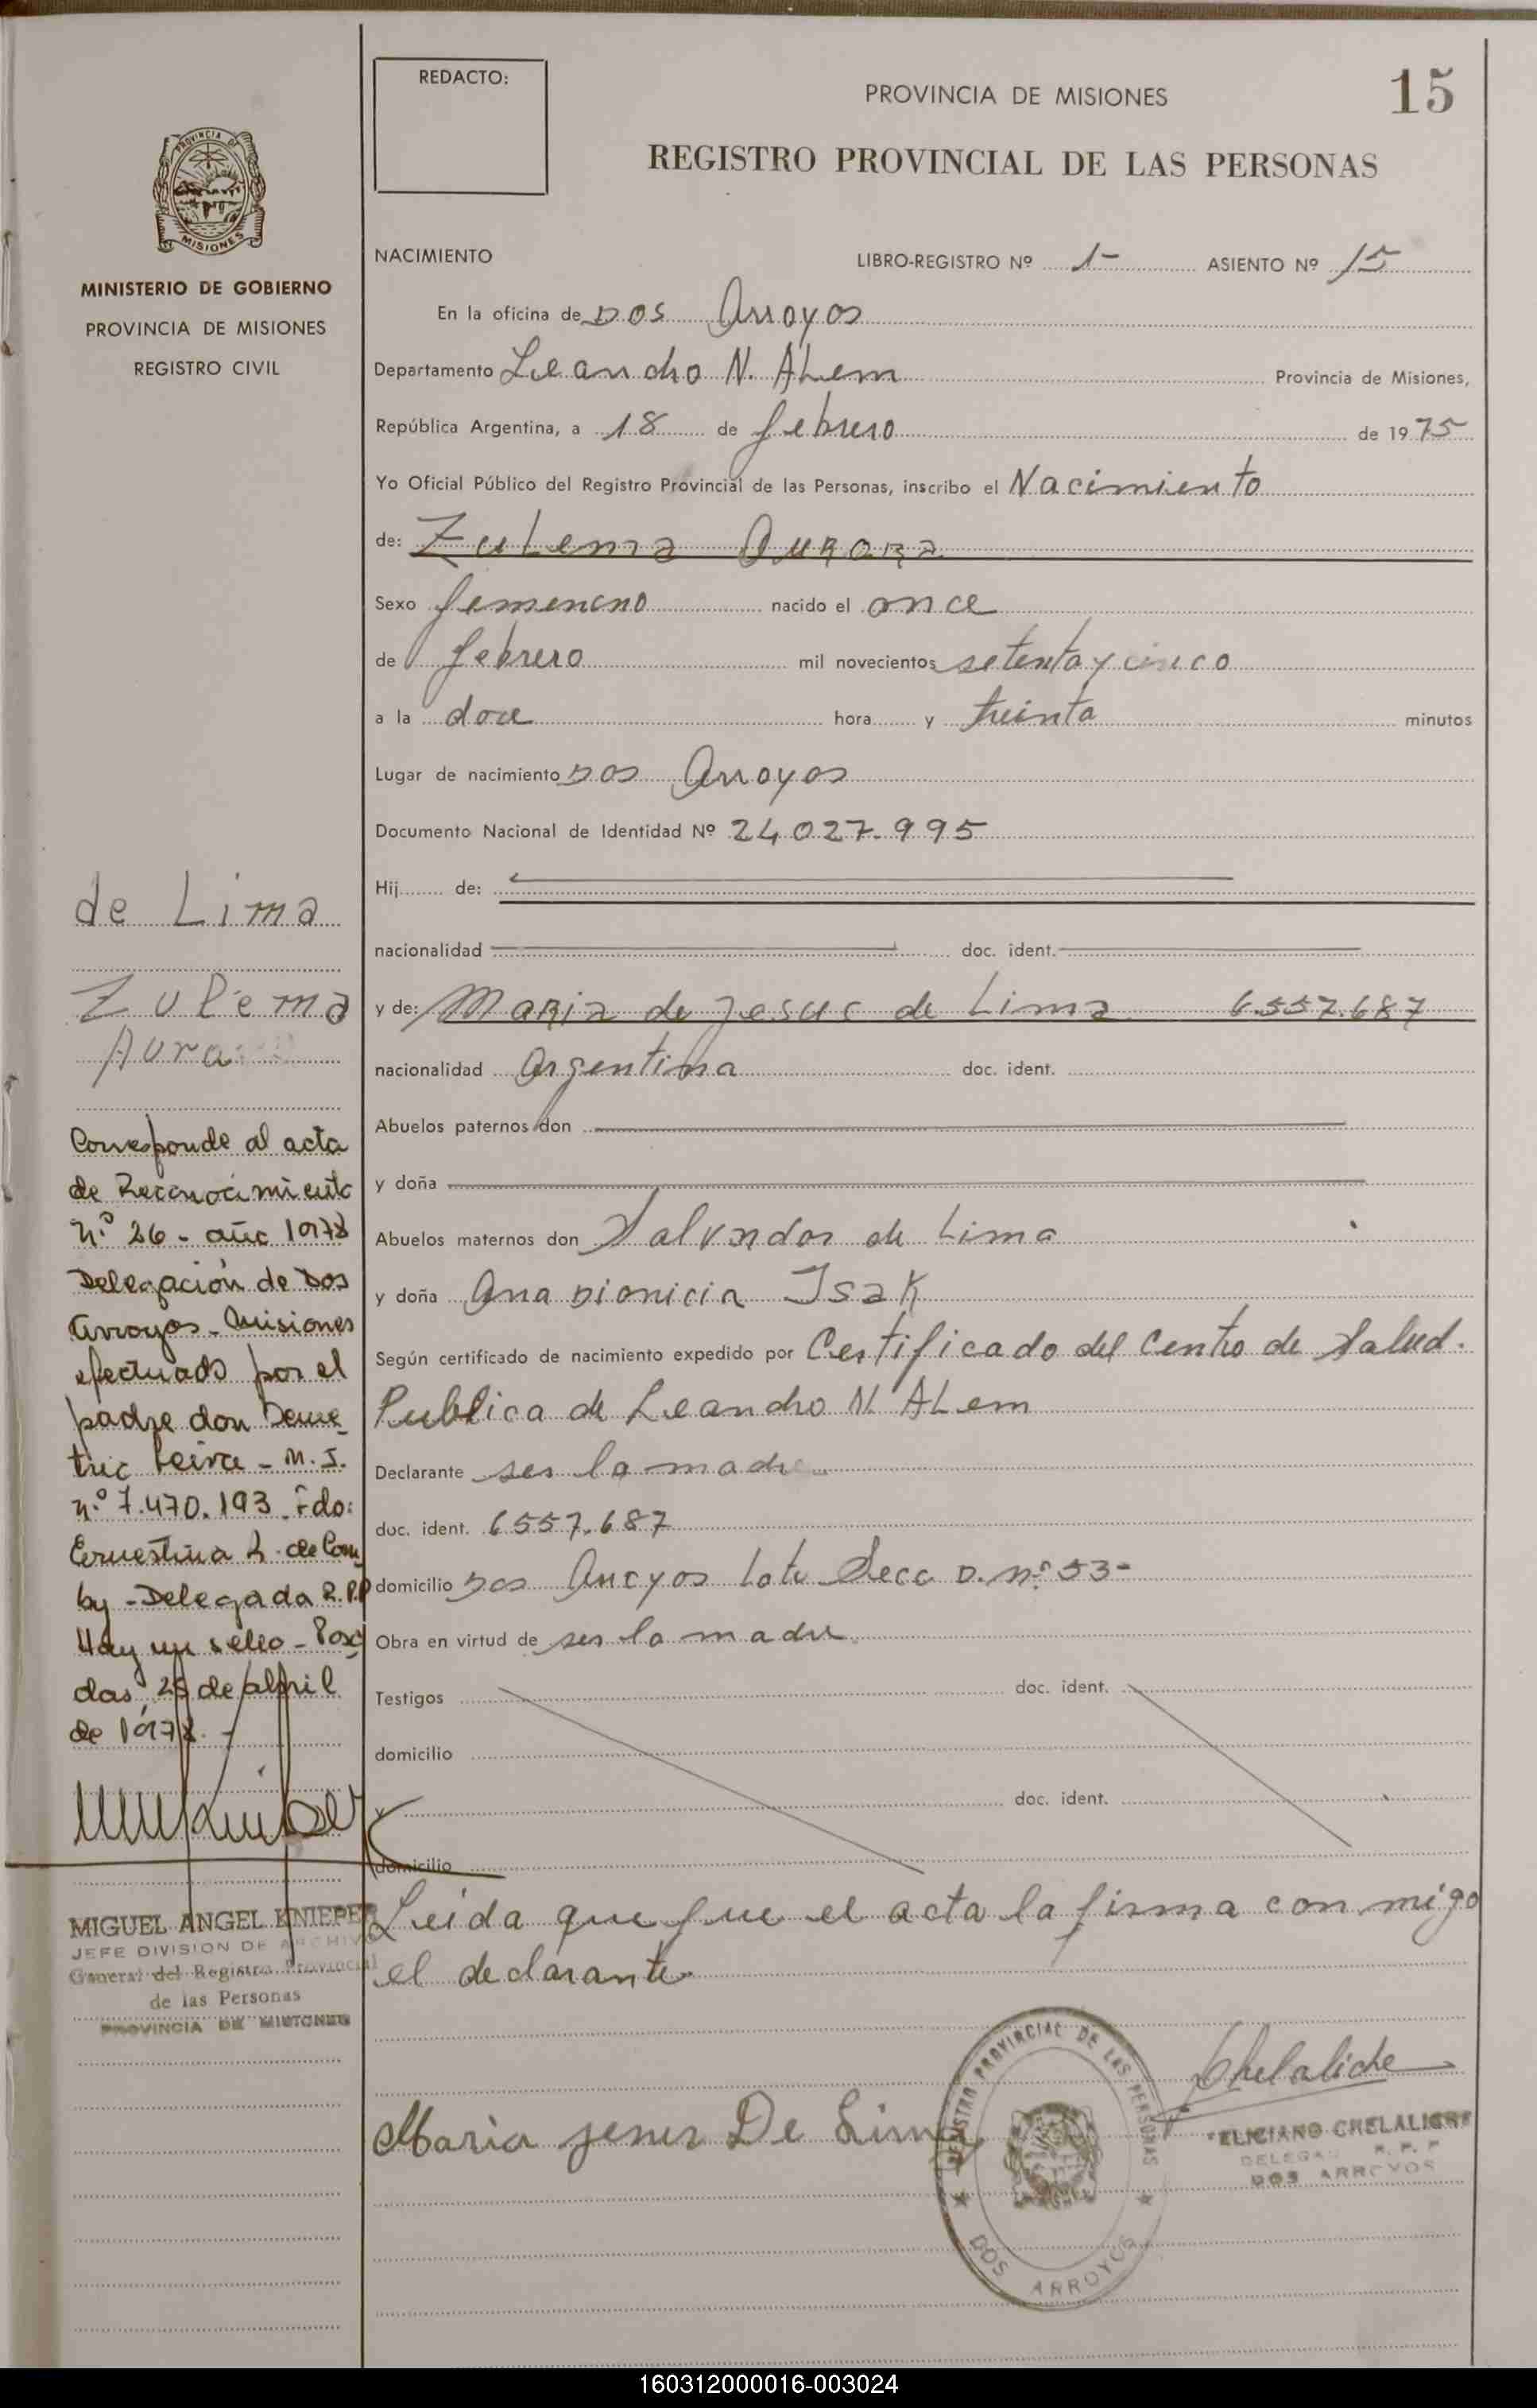 REDACTO:
PROVINCIA DE MISIONES
15
REGISTRO PROVINCIAL DE LAS PERSONAS
PROVINCIA DE
MISIONES
MINISTERIO DE GOBIERNO
PROVINCIA DE MISIONES
REGISTRO CIVIL
NACIMIENTO
LIBRO-REGISTRO Nº 1- ASIENTO Nº 15
En la oficina de DOS Arroyos
Departamento Leandro N. ALem Provincia de Misiones,
República Argentina, a 18 de febrero de 1975
Yo Oficial Público del Registro Provincial de las Personas, inscribo el Nacimiento
de: Zulema Aurora
Sexo femenino nacido el once
de febrero mil novecientos setenta y cinco
a la doce hora y treinta minutos
Lugar de nacimiento DOS Arroyos
Documento Nacional de Identidad Nº 24.027.995
Hij de:
nacionalidad doc. ident.
y de: Maria de Jesus de Lima 6.557.687
nacionalidad Argentina doc. ident.
Abuelos paternos don
y doña
Abuelos maternos don Salvador de Lima
y doña Ana Dionicia Isak
Según certificado de nacimiento expedido por Certificado del Centro de Salud.
Publica de Leandro N ALem
Declarante ser la madre
doc. ident. 6557.687
domicilio Dos Arroyos Lote Secc D. nº 53-
Obra en virtud de ser la madre
Testigos doc. ident.
domicilio
y doc. ident.
domicilio
Leida que fue el acta la firma con migo
el declarante
Maria jesus De Lima
REGISTRO PROVINCIAL DE LAS PERSONAS
DOS ARROYOS
Chelaliche
FELICIANO CHELALICHE
DELEGADO R. P. P
DOS ARROYOS
de Lima
Zulema
Aurora
Corresponde al acta
de Reconocimiento
nº 26 - año 1978
Delegación de Dos
Arroyos - Misiones
efectuado por el
padre don Deme
trio Leiva - M. I.
nº 7.470.193. Fdo:
Ernestina R. de Com
by - Delegada R.P.P
Hay un sello - Posa
das, 25 de abril
de 1978. -
MIGUEL ANGEL KNIEPER
JEFE DIVISION DE ARCHIVO
General del Registro Provincial
de las Personas
PROVINCIA DE MISIONES
160312000016-003024